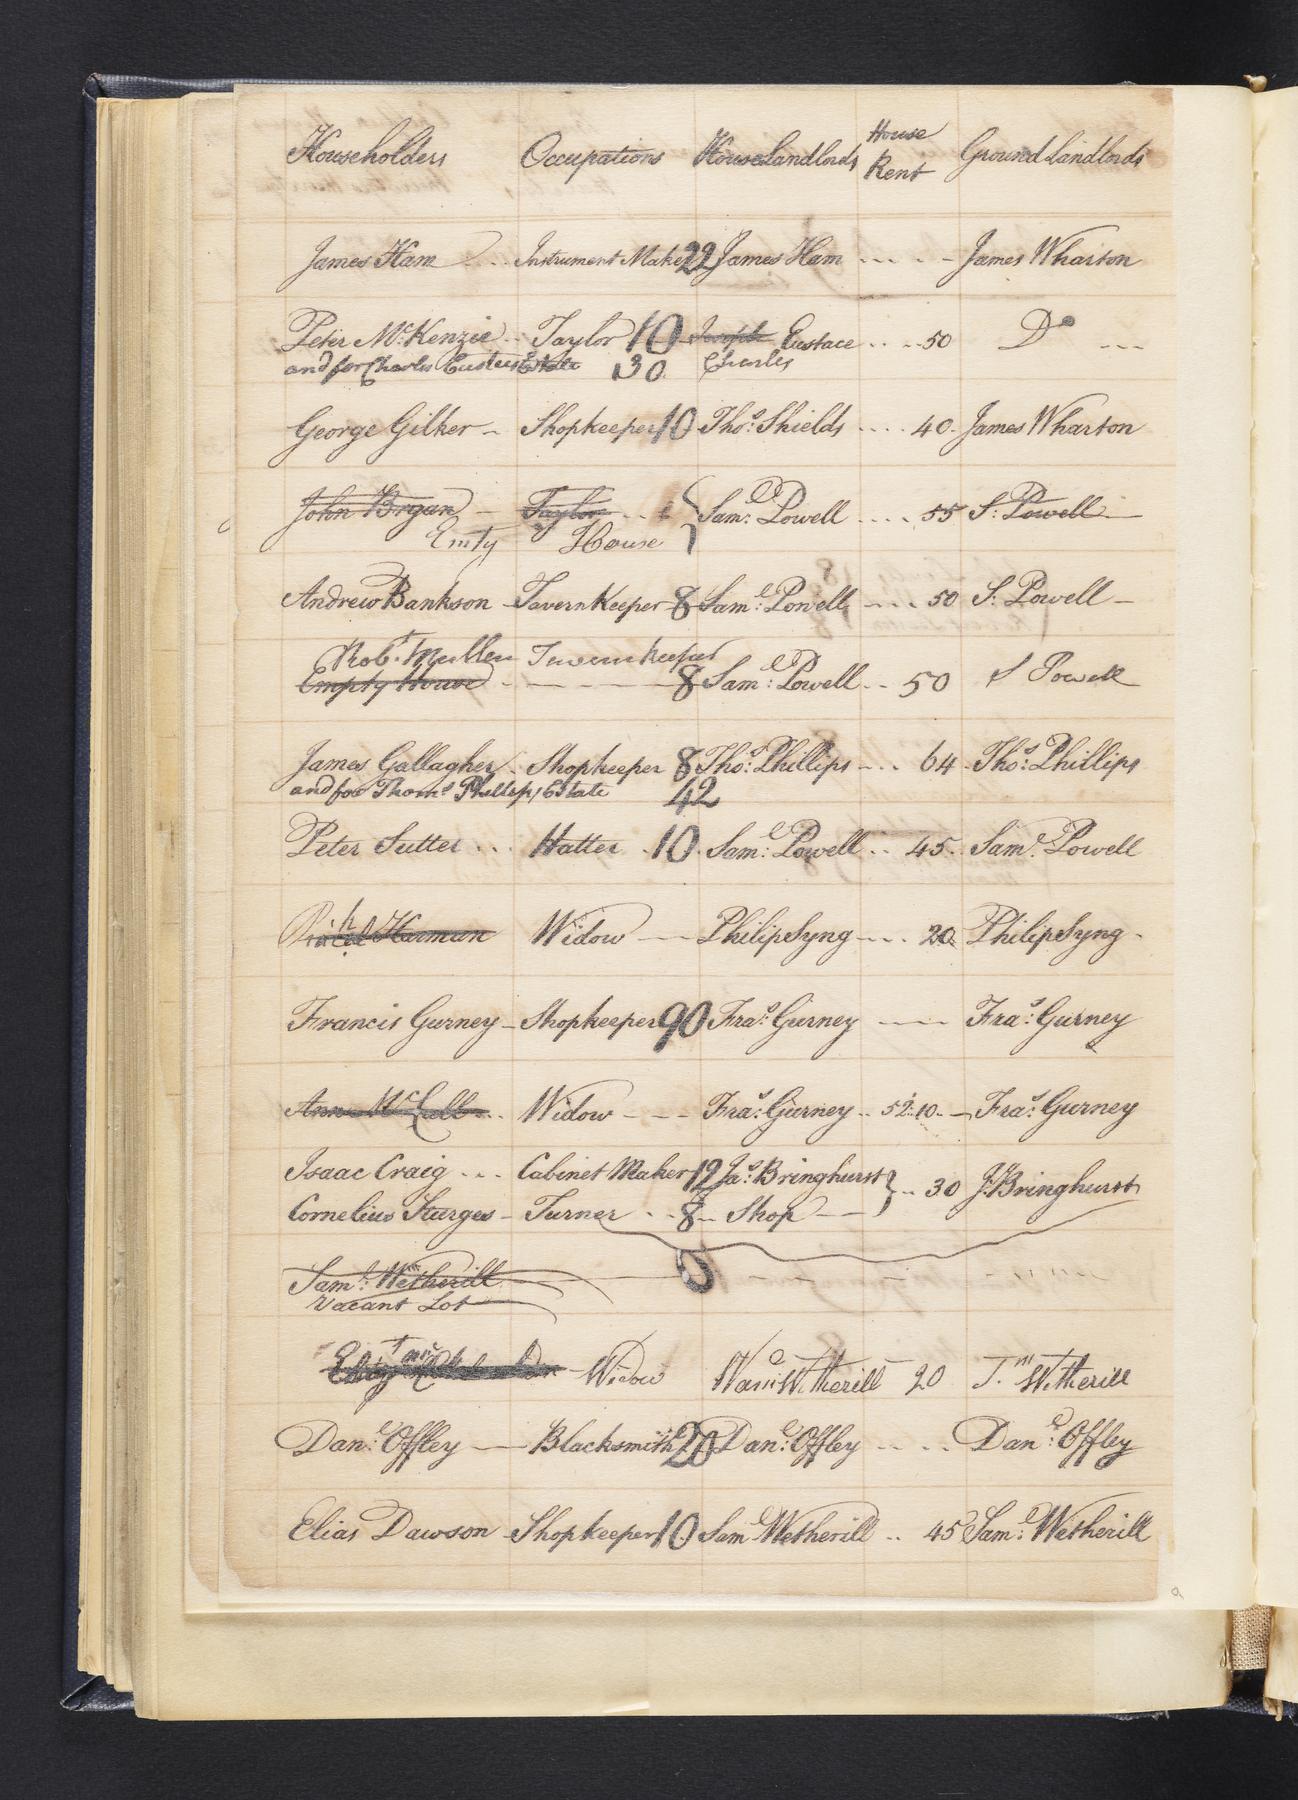 Householders Occupations House Landlords House Rent Ground Landlords
James Ham .. Instrument Maker 22 James Ham ... - James Wharton
Peter McKenzie .. Taylor 10 Joseph Eustace .. - 50 Do ---
and for Charles Eustace Estate 30 Charles
George Gilker - Shopkeeper 10 Thos: Shields .... 40 - James Wharton
John Bryan - Taylor .. Saml: Powell .... 55 S: Powell -
Emty House
Andrew Bankson - Tavern Keeper - 8 Saml: Powell - ... 50 S: Powell -
Robt. Mullen Tavern keeper
Empty House - - - - 8 Saml: Powell .. 50 S Powell
James Gallagher . Shopkeeper 8 Thos: Phillips - .. 64 - Thos: Phillips
and for Thoms Phillips Estate 42
Peter Sutter ... Hatter . 10 . Saml: Powell .. 45 .. Saml: Powell
Harmon Widow --- Philip Syng - .. 20 Philip Syng -
Francis Gurney - Shopkeeper 90 Fras: Gurney ---- Fras: Gurney
Ann McCall .. Widow - - - Fras: Gurney .. 52:10 - Fras: Gurney
Isaac Craig ... Cabinet Maker 12 Jas: Bringhurst } .. 30 J: Bringhurst
Cornelius Sturges - Turner .. 8 - Shop ---
Saml: Wetherill 0
Vacant Lot
Widow Wetherill 20 Wetherill
Danl: Offley --- Blacksmith 20 Danl: Offley .. .. Danl: Offley
Elias Dawson - Shopkeeper 10 Saml Wetherill .. 45 Saml: Wetherill